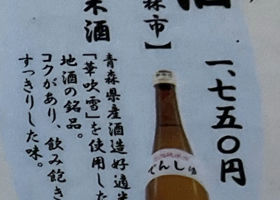 酒
森市】
米酒
一、七五〇円
青森県産酒造好適米
「華吹雪」を使用した
地酒の銘品。
コクがあり、飲み飽き
すっきりした味。
特別純米酒
でんしゅ